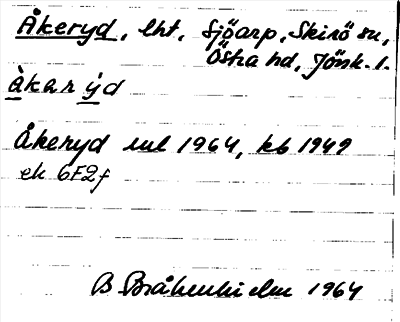 Åkeryd, lht, Sjöarp, Skirö sn,
Östra hd, Jönk. l.
åkarýd
Åkeryd uul 1964, kb 1949
ek 6F2f
B Bråkenhielm 1964